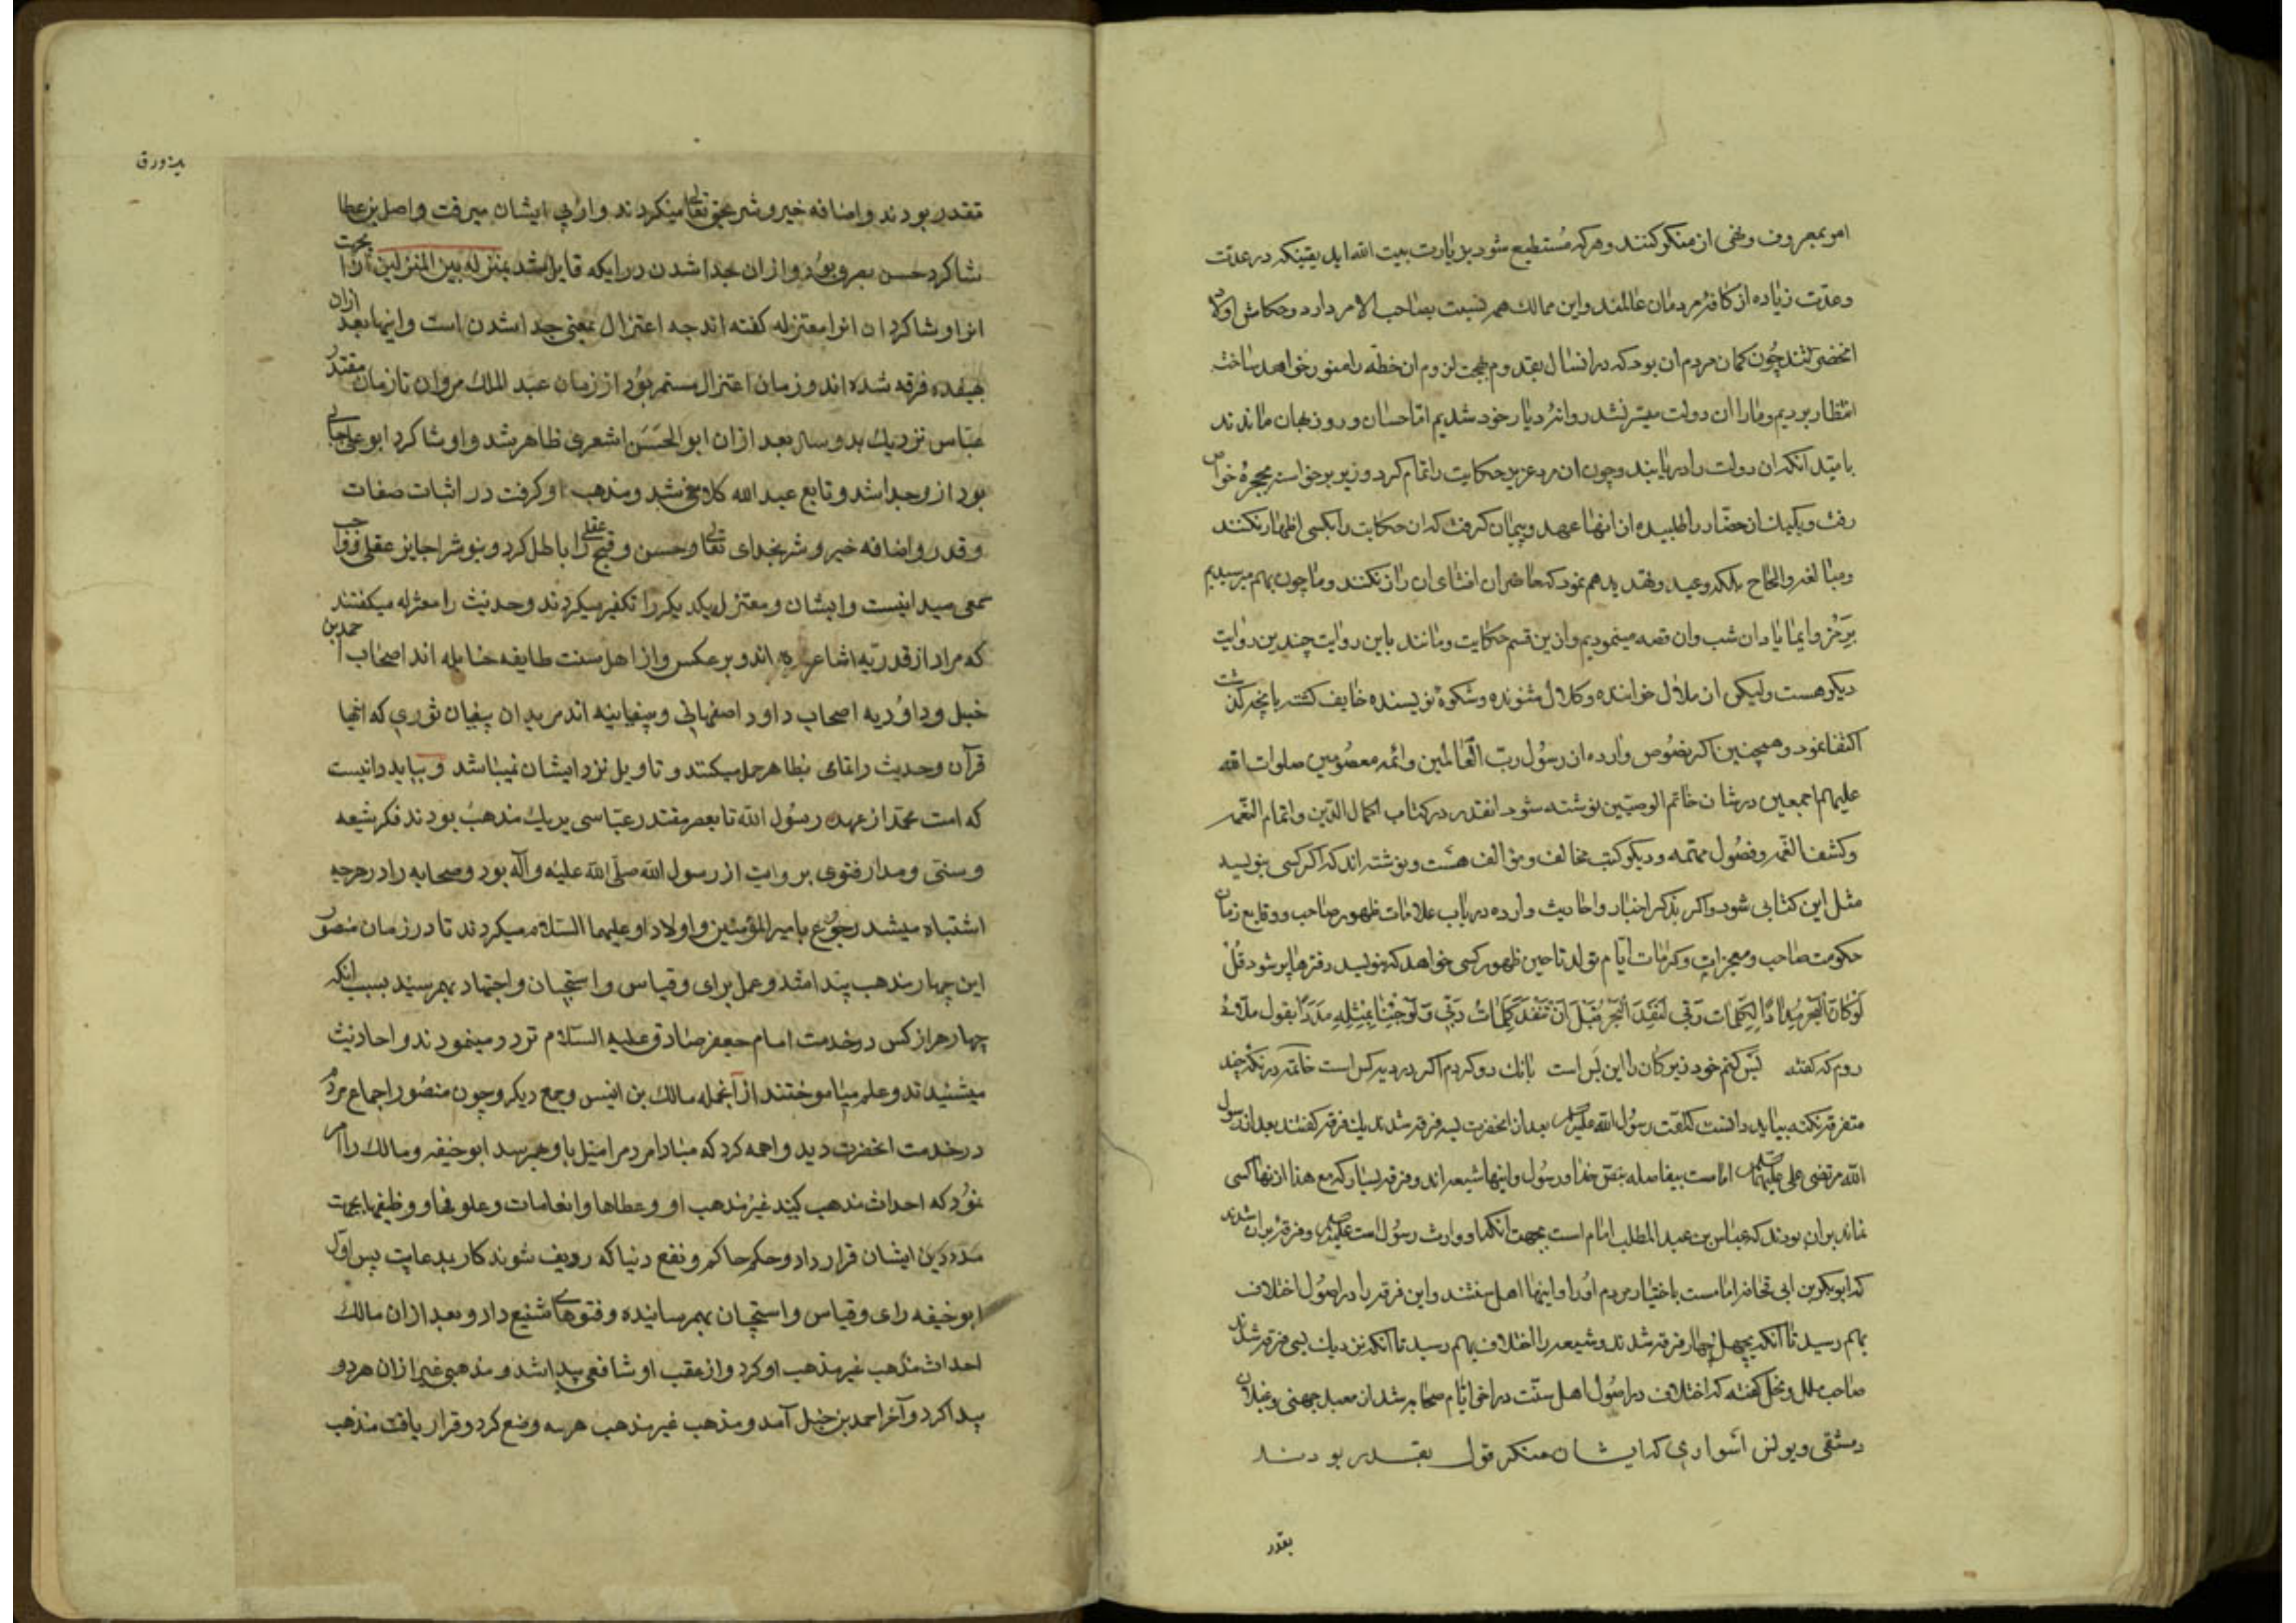 امر بمعروف ونهی از منکر کنند وهر که مستطیع شود بزیارت بیت الله اید یقینکه در عدت
وعدت زیاده از کافهٔ مردمان عالمند واین ممالک هم نسبت بصاحب الامر دارد وحکامش اولاد
انحضرتند چون کمان مردم ان بود که در انسال بقدوم بهجت لزوم ان خطه را منور خواهد ساخت
انتظار بردیم وما را ان دولت میسر نشد روانهٔ دیار خود شدیم اما حسان وروزبهان ماندند
بامید انکه ان دولت را دریابند وچون ان مرد عزیز حکایت را تمام کرد وزیر برخواسته بحجرهٔ خواص
رفت ویکیک از حضار را طلبیده از انها عهد وپیمان کرفت که ان حکایت را بکسی اظهار نکنند
ومبالغه والحاح بلکه وعید وتهدید هم نمود که حاضران افشای ان راز نکنند وما چون بهم میرسیدیم
برمز وایما یاد ان شب وان قصه مینمودیم وازین قسم حکایت ومانند باین روایت چندین روایت
دیکر هست ولیکن از ملال خواننده وکلال شنونده وشکوهٔ نویسنده خایف کشته بانچه کذشت
اکتفا نمود وهمچنین اکر نصوص وارده از رسول رب العالمین وائمه معصومین صلوات الله
علیهم اجمعین در شان خاتم الوصیین نوشته شود انقدر در کتاب اکمال الدین واتمام النعمه
وکشف الغمه وفصول مهمه ودیکر کتب مخالف ومؤالف هست ونوشته اند که اکر کسی بنویسد
مثل این کتابی شود واکر بذکر اخبار واحادیث وارده در باب علامات ظهور صاحب ووقایع زمان
حکومت صاحب ومعجزات وکرامات ایام تولد تا حین ظهور کسی خواهد که بنویسد دفترها پر شود قل
لو کان البحر مدادا لکلمات ربی لنفد البحر قبل ان تنفد کلمات ربی ولو جئنا بمثله مددا بقول ملای
روم که کفته بس کنم خود زیرکان را این بس است بانک دو کردم اکر در دیه کس است خاتمه در نکتهٔ چند
متفرقه نکته بباید دانست که امت رسول الله صلی الله علیه بعد از انحضرت بسه فرقه شدند یک فرقه کفتند بعد از رسول
الله مرتضی علی علیهما امامست بیفاصله بنص خدا ورسول واینها شیعه اند وفرقه بسیار که مع هذا از انها کسی
نماند بران بودند که عباس بن عبد المطلب امام است بجهت انکه او وارث رسول است علیه وفرقهٔ بران شدند
که ابو بکر بن ابی قحافه امامست باختیار مردم او را واینها اهل سنتند واین فرقه را در اصول اختلاف
بهم رسید تا انکه بچهل چهار فرقه شدند وشیعه را اختلاف بهم رسید تا انکه نزدیک بسی فرقه شدند
صاحب ملل ونحل کفته که اختلاف در اصول اهل سنت در اخر ایام صحابه شد از معبد جهنی وغیلان
دمشقی ویونس اسواری که ایشان منکر قول بقدر بودند
بقدر
یزورق
تقدر بودند واضافه خیر وشر بحق تعالی میکردند واز پی ایشان میرفت واصل بن عطا
شاکرد حسن بصری بود واز ان جدا شدن در انکه قایل شد بمنزله بین المنزلتین بجهت ان
او را وشاکردان او را معتزله کفته اند چه اعتزال بمعنی جدا شدن است واینها بعد ازان
بهیفده فرقه شده اند وزمان اعتزال مستمر بود از زمان عبد الملک مروان تا زمان مقتدر
عباس نزدیک بدو سال بعد ازان ابو الحسن اشعری ظاهر شد واو شاکرد ابو علی جبائی
بود از وجدا شد وتابع عبد الله کلابی شد ومذهب او کرفت در اثبات صفات
وقدر واضافه خیر وشر بخدای تعالی وحسن وقبح عقلی را باطل کرد
سمعی میدانست وایشان ومعتزله یکدیکر را تکفیر میکردند وحدیث را معتزله میکفتند
که مراد از قدریه اشاعره اند وبر عکس واز اهل سنت طایفه حنابله اند اصحاب احمد بن
حنبل وداودیه اصحاب داود اصفهانی وسفیانیه اند مریدان سفیان ثوری که انها
قرآن وحدیث را تمامی بظاهر حمل میکنند وتاویل نزد ایشان نمیباشد وبباید دانیست
که امت محمد از عهد رسول الله تا بعصر مقتدر عباسی بریک مذهب بودند فکر شیعه
وسنی ومدار فتوی بروایت از رسول الله صلی الله علیه وآله بود وصحابه را در هرچه
اشتباه میشد رجوع بامیر المؤمنین واولاد او علیهما السلام میکردند تا در زمان منصور
این چهار مذهب پیدا شد وعمل برای وقیاس واستحسان واجتهاد بهم رسید بسبب انکه
چهار هزار کس در خدمت امام جعفر صادق علیه السلام تردد مینمودند واحادیث
میشنیدند وعلم میاموختند از آنجمله مالک بن انیس وجمع دیکر وچون منصور اجماع مردم
در خدمت انحضرت دید واهمه کرد که مبادا مردم را میل باو بهم رسد ابو حنیفه ومالک را امر
نمود که احداث مذهب کنند غیر مذهب او وعطاها وانعامات وعلوفها ووظیفها بجهت
مدد دین ایشان قرار داد وحکم حاکم ونفع دنیا که ردیف شوند کار بدعایت پس اول
ابو حنیفه رای وقیاس واستحسان بهم رسانیده وفتوهای شنیع داد وبعد ازان مالک
احداث مذهب غیر مذهب او کرد واز عقب او شافعی پیدا شد ومذهبی غیر ازان هر دو
پیدا کرد وآخر احمد بن حنبل آمد ومذهب غیر مذهب هر سه وضع کرد وقرار یافت مذهب